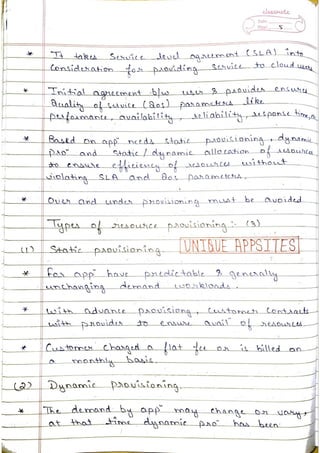 classmate
* It takes service level agreement (SLA) into
consideration for providing service to cloud users
* Initial agreement b/w user & provider ensures
Quality of service (QoS) parameters like
performance, availability, reliability, response time,
* Based on appⁿ needs static provisioning, dynamic
proⁿ and static / dynamic allocation of resources
to ensure efficiency of resources without
violating SLA and QoS parameters.
* Over and under provisioning must be avoided.
Types of resource provisioning :- (3)
(1) Static provisioning.
UNIQUE APPSITES
* For appⁿ have predictable & generally
unchanging demand workloads.
* With advance provisiong, customer contracts
with provider to ensure availⁿ of resources
* Customer charged a flat fee or is billed on
a monthly basis.
(2) Dynamic provisioning.
* The demand by appⁿ may change or vary,
at that time dynamic proⁿ has been